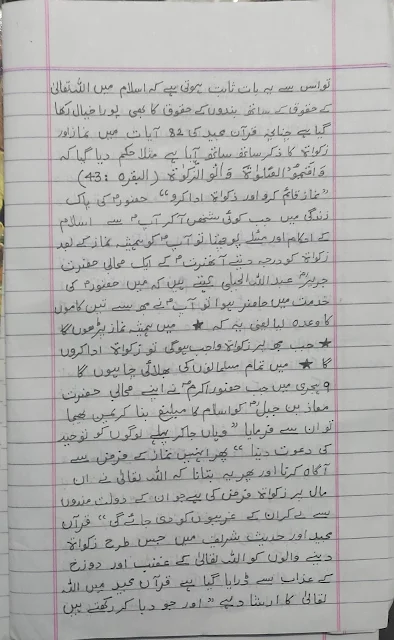 تو اس سے یہ بات ثابت ہوتی ہے کہ اسلام میں اللہ تعالیٰ
کے حقوق کے ساتھ بندوں کے حقوق کا بھی پورا خیال رکھا
گیا ہے چنانچہ قرآن مجید کی 82 آیات میں نماز اور
زکواۃ کا ذکر ساتھ ساتھ آیا ہے مثلا حکم دیا گیا کہ
وَاَقِیْمُوا الصَّلٰوۃَ وَاٰتُوا الزَّکٰوۃَ (البقرہ 43:)
"نماز قائم کرو اور زکواۃ ادا کرو" حضورؐ کی پاک
زندگی میں جب کوئی شخص آکر آپؐ سے اسلام
کے احکام اور مسئلے پوچھتا تو آپؐ ہمیشہ نماز کے بعد
زکواۃ کو درجہ دیتے آنحضرتؐ کے ایک صحابی حضرت
جریرؓ عبداللہ کہتے ہیں کہ میں حضورؐ کی
خدمت میں حاضر ہوا تو آپؐ نے مجھ سے تین کاموں
کا وعدہ لیا یہ کہ ★ میں ہمیشہ نماز پڑھوں گا
★ جب مجھ پر زکواۃ واجب ہوگی تو زکواۃ ادا کروں
گا ★ میں تمام مسلمانوں کی بھلائی چاہوں گا
9 ہجری میں جب حضور اکرمؐ نے اپنے صحابی حضرت
معاذ بن جبلؓ کو اسلام کا مبلغ بنا کر یمن بھیجا
تو ان سے فرمایا "وہاں جاکر پہلے لوگوں کو توحید
کی دعوت دینا" پھر انہیں نماز کے فرض سے
آگاہ کرنا اور پھر یہ بتانا کہ اللہ تعالیٰ نے ان
مال پر زکواۃ فرض کی ہے جو ان کے دولت مندوں
سے لے کر ان کے غریبوں کو دی جائے گی" قرآن
مجید اور حدیث شریف میں جس طرح زکواۃ
دینے والوں کو اللہ تعالیٰ کے غضب اور دوزخ
کے عذاب سے ڈرایا گیا ہے قرآن مجید میں اللہ
تعالیٰ کا ارشاد ہے "اور جو دبا کر رکھتے ہیں